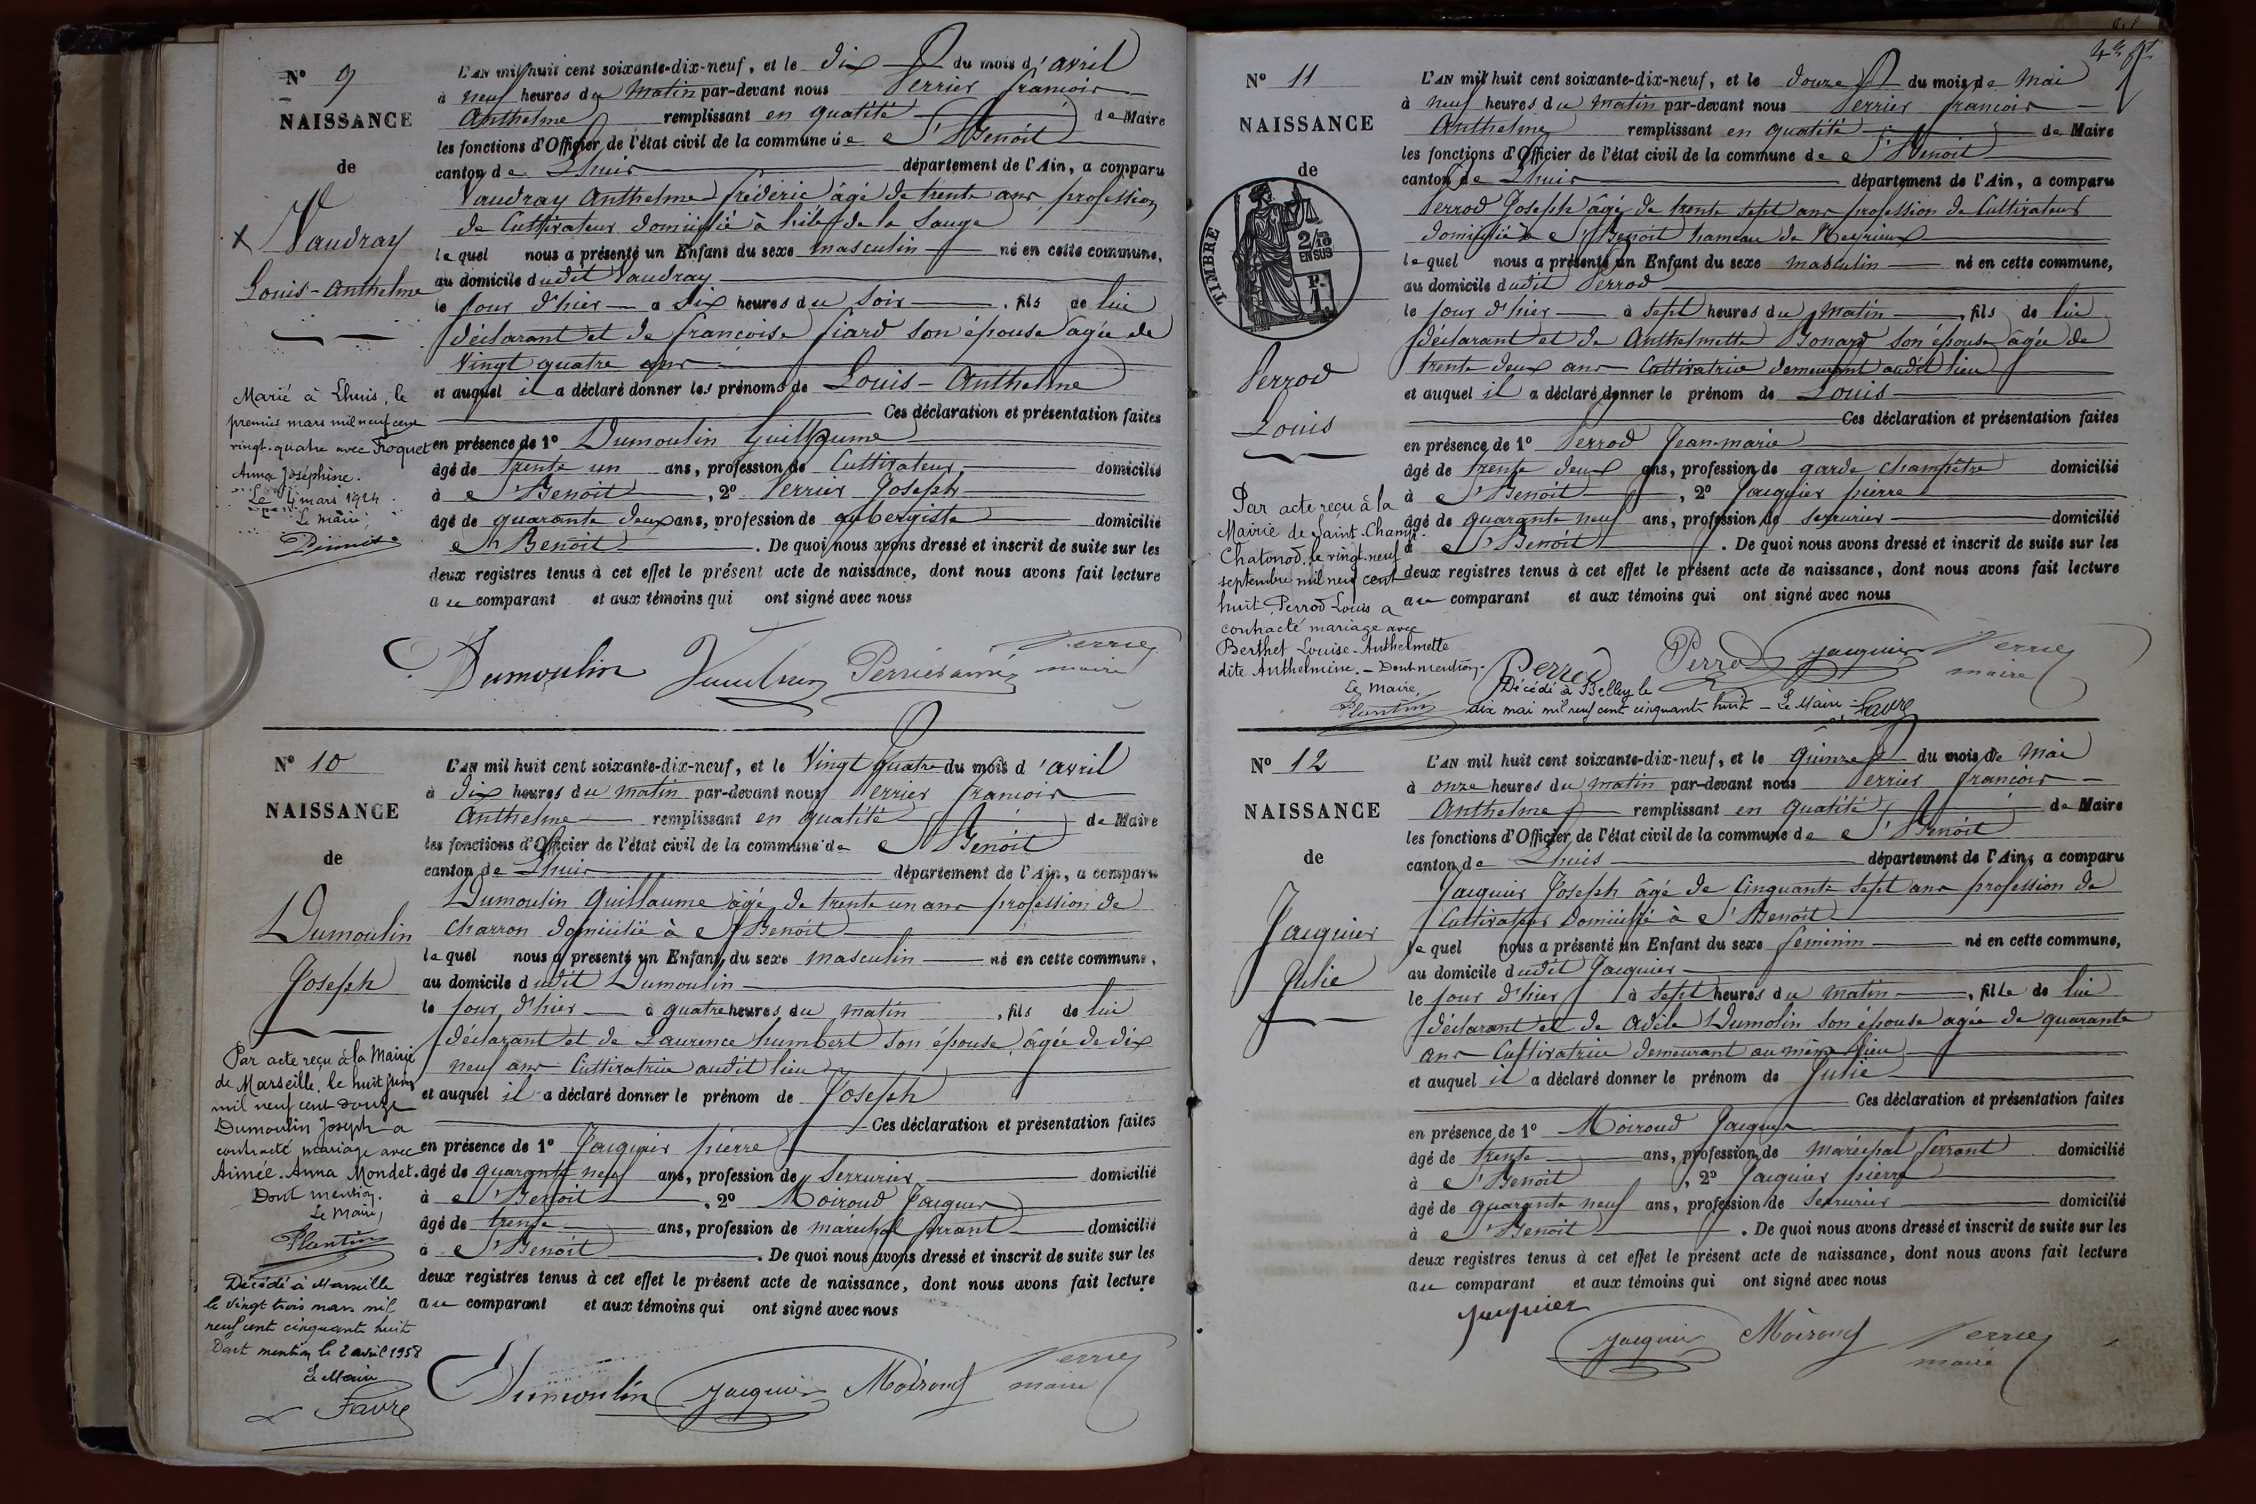 N° 9
NAISSANCE
de
Vaudray
Louis-Anthelme
Marié à Lhuis, le
premier mars mil neuf cent
vingt-quatre avec Froquet
Anna Joséphine.
Le 4 mars 1924
Le maire,
L'AN mil huit cent soixante-dix-neuf, et le dix du mois d'avril
à neuf heures du matin par-devant nous Perrier françois
Anthelme remplissant en qualité de Maire
les fonctions d'Officier de l'état civil de la commune de St Benoit
canton de Lhuis département de l'Ain, a comparu
Vaudray Anthelme frédéric âgé de trente ans, profession
de Cultivateur domicilié à de la Sauge
lequel nous a présenté un Enfant du sexe masculin né en cette commune,
au domicile dudit Vaudray
le jour d'hier à dix heures du soir, fils de lui
déclarant et de francoise fiard son épouse âgée de
vingt quatre ans
et auquel il a déclaré donner les prénoms de Louis-Anthelme
Ces déclaration et présentation faites
en présence de 1° Dumoulin Guillaume
âgé de trente un ans, profession de Cultivateur domicilié
à St Benoit, 2° Perrier Joseph
âgé de quarante deux ans, profession de aubergiste domicilié
à St Benoit. De quoi nous avons dressé et inscrit de suite sur les
deux registres tenus à cet effet le présent acte de naissance, dont nous avons fait lecture
au comparant et aux témoins qui ont signé avec nous
Dumoulin Vaudray Perrier ainé Perrier
maire
N° 10
NAISSANCE
de
Dumoulin
Joseph
Par acte reçu à la Mairie
de Marseille, le huit juin
mil neuf cent douze
Dumoulin Joseph a
contracté mariage avec
Aimée-Anna Mondet.
Dont mention.
Le Maire,
Plantin
Décédé à Marseille
le vingt trois mars mil
neuf cent cinquante huit
Dont mention le 2 avril 1958
Le Maire
Favre
L'AN mil huit cent soixante-dix-neuf, et le vingt quatre du mois d'avril
à dix heures du matin par-devant nous Perrier francois
Anthelme remplissant en qualité de Maire
les fonctions d'Officier de l'état civil de la commune de St Benoit
canton de Lhuis département de l'Ain, a comparu
Dumoulin Guillaume âgé de trente un ans profession de
charron domicilié à St Benoit
lequel nous a présenté un Enfant du sexe masculin né en cette commune,
au domicile dudit Dumoulin
le jour d'hier à quatre heures du matin, fils de lui
déclarant et de Laurence humbert son épouse âgée de dix
neuf ans Cultivatrice audit lieu
et auquel il a déclaré donner le prénom de Joseph
Ces déclaration et présentation faites
en présence de 1° Jacquier pierre
âgé de quarante neuf ans, profession de Serrurier domicilié
à St Benoit, 2° Moiroud Jacques
âgé de trente ans, profession de maréchal ferrant domicilié
à St Benoit. De quoi nous avons dressé et inscrit de suite sur les
deux registres tenus à cet effet le présent acte de naissance, dont nous avons fait lecture
au comparant et aux témoins qui ont signé avec nous
Dumoulin Jacquier Moiroud Perrier
maire
N° 11
NAISSANCE
de
TIMBRE
2/10
EN SUS
P.
1
Perrod
Louis
Par acte reçu à la
Mairie de Saint-Champ-
Chatonod, le vingt-neuf
septembre mil neuf cent
huit, Perrod Louis a
contracté mariage avec
Berthet Louise-Anthelmette
dite Anthelmine. - Dont mention.
Le Maire,
Plantin
L'AN mil huit cent soixante-dix-neuf, et le douze du mois de mai
à neuf heures du matin par-devant nous Perrier francois
Anthelme remplissant en qualité de Maire
les fonctions d'Officier de l'état civil de la commune de St Benoit
canton de Lhuis département de l'Ain, a comparu
Perrod Joseph âgé de trente sept ans profession de Cultivateur
domicilié à St Benoit hameau de Meyrieux
lequel nous a présenté un Enfant du sexe masculin né en cette commune,
au domicile dudit Perrod
le jour d'hier à sept heures du matin, fils de lui
déclarant et de Anthelmette Bonard son épouse âgée de
trente deux ans Cultivatrice demeurant audit lieu
et auquel il a déclaré donner le prénom de Louis
Ces déclaration et présentation faites
en présence de 1° Perrod Jean-marie
âgé de trente deux ans, profession de garde champêtre domicilié
à St Benoit, 2° Jacquier pierre
âgé de quarante neuf ans, profession de serrurier domicilié
à St Benoit. De quoi nous avons dressé et inscrit de suite sur les
deux registres tenus à cet effet le présent acte de naissance, dont nous avons fait lecture
au comparant et aux témoins qui ont signé avec nous
Perrod Perrod Jacquier Perrier
maire
Décédé à Belley le
dix mai mil neuf cent cinquante huit - Le Maire - Favre
N° 12
NAISSANCE
de
Jacquier
Julie
L'AN mil huit cent soixante-dix-neuf, et le quinze du mois de mai
à onze heures du matin par-devant nous Perrier francois
Anthelme remplissant en qualité de Maire
les fonctions d'Officier de l'état civil de la commune de St Benoit
canton de Lhuis département de l'Ain, a comparu
Jacquier Joseph âgé de Cinquante sept ans profession de
Cultivateur domicilié à St Benoit
lequel nous a présenté un Enfant du sexe feminin né en cette commune,
au domicile dudit Jacquier
le jour d'hier à sept heures du matin, fille de lui
déclarant et de Adèle Dumolin son épouse agée de quarante
ans Cultivatrice demeurant au même lieu
et auquel il a déclaré donner le prénom de Julie
Ces déclaration et présentation faites
en présence de 1° Moiroud Jacques
âgé de trente ans, profession de maréchal ferrant domicilié
à St Benoit, 2° Jacquier pierre
âgé de quarante neuf ans, profession de serrurier domicilié
à St Benoit. De quoi nous avons dressé et inscrit de suite sur les
deux registres tenus à cet effet le présent acte de naissance, dont nous avons fait lecture
au comparant et aux témoins qui ont signé avec nous
Jacquier
Jacquier Moiroud Perrier
maire